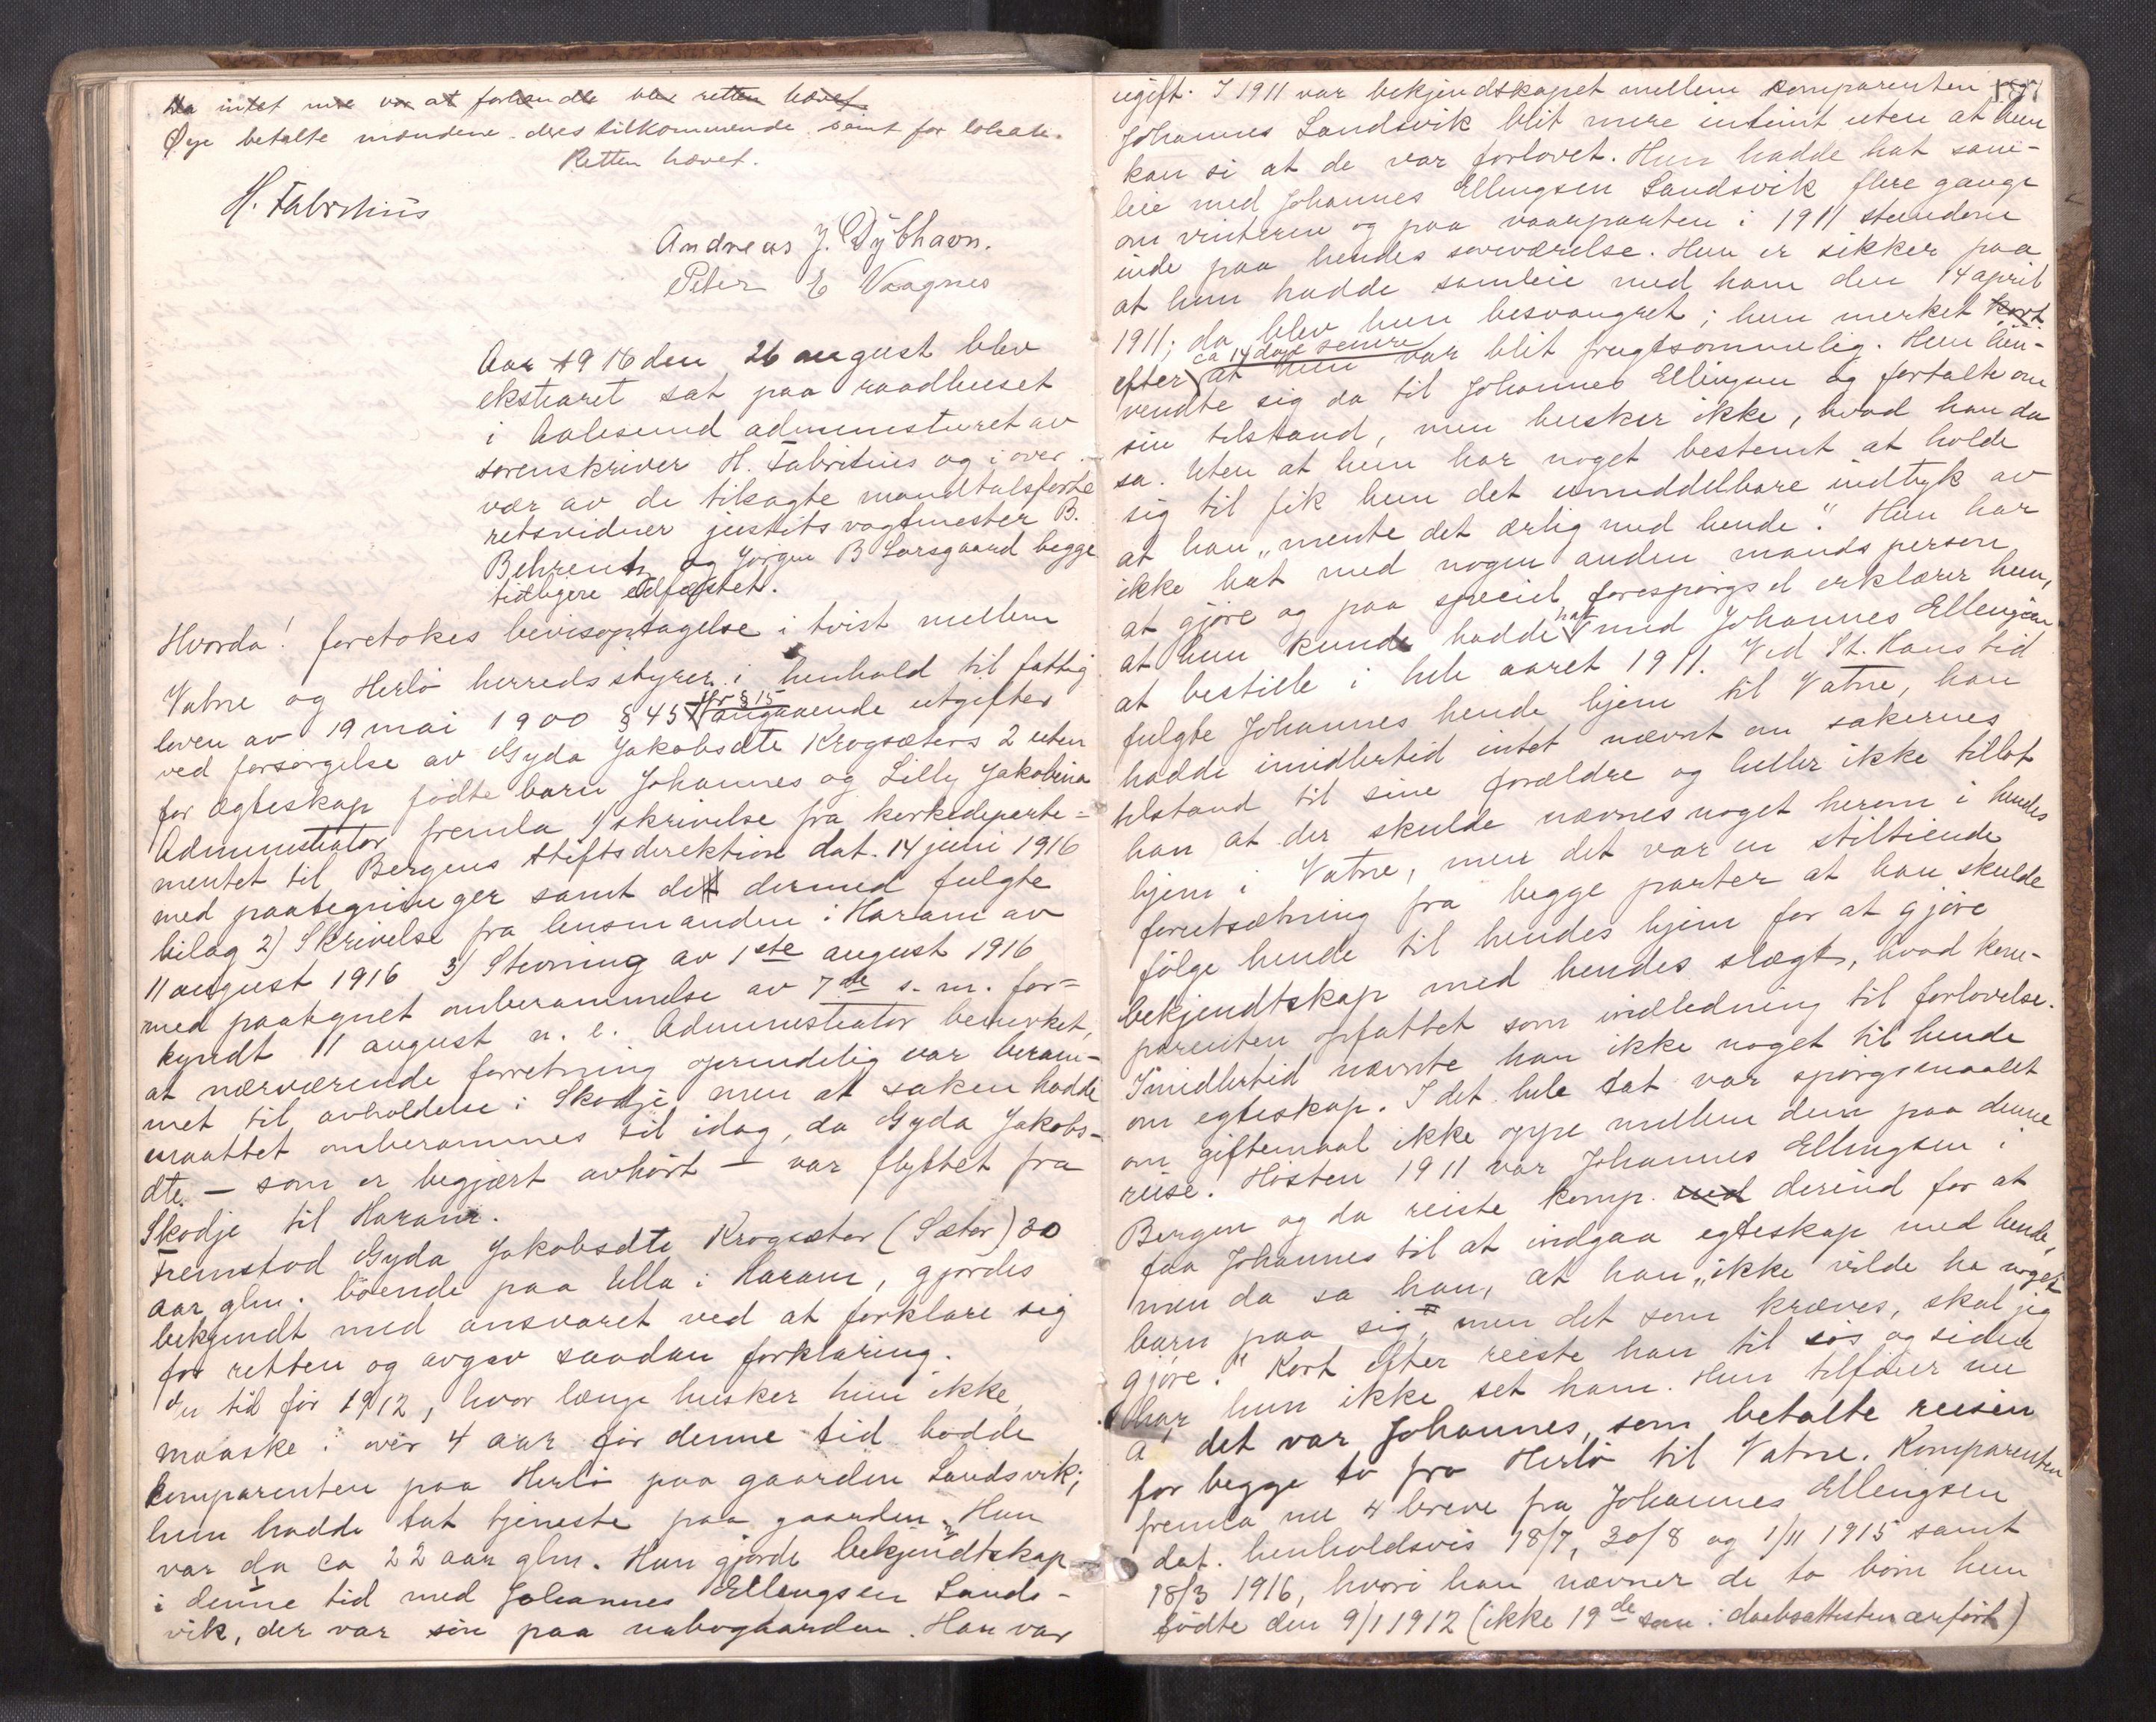 Da intet mere var at forhandle blev retten hævet
Øye betalte mændene deres tilkommende samt for lokale.
Retten hævet.
H. Fabritius
Andreas J. Dybhavn.
Peter E Vaagnes
Aar 1916 den 26 august blev
ekstraret sat paa raadhuset
i Aalesund administreret av
sorenskriver H. Fabritius og i over-
vær av de tilkaldte mandtalsførte
retsvidner justitsvagtmester B.
Behrentz og Jørgen B Larsgaard begge
tidligere edfæstet.
Hvorda! foretokes bevisoptagelse i tvist mellem
Vatne og Herlø herredsstyrer i henhold til fattig
loven av 19 mai 1900 § 45 jfr § 15 angaaende utgifter
ved forsørgelse av Gyda Jakobsdtr Krogsæters 2 uten
for ægteskap fødte barn Johannes og Lilly Jakobina
Administrator fremla 1) skrivelse fra kirkedeparte=
mentet til Bergens stiftsdirektion dat. 14 juni 1916
med paategninger samt de dermed fulgte
bilag 2) Skrivelse fra lensmanden i Haram av
11 august 1916 3) Stevning av 1ste august 1916
med paategnet omberammelse av 7de s. m. for=
kyndt 11 august n. e. Administrator bemerket,
at nærværende forretning oprindelig var beram-
met til avholdelse i Skodje men at saken hadde
maattet omberammes til idag, da Gyda Jakobs-
dtr. — som er begjært avhørt — var flyttet fra
Skodje til Haram.
Fremstod Gyda Jakobsdtr Krogsæter (Sæter) 30
aar glm. boende paa Ulla i Haram, gjordes
bekjendt med ansvaret ved at forklare sig
for retten og avgav saadan forklaring.
En tid før 1912, hvor længe husker hun ikke,
maaske i over 4 aar før denne tid bodde
komparenten paa Herlø paa gaarden Landsvik;
hun hadde tat tjeneste paa gaarden. Hun
var da ca 22 aar glm. Hun gjorde bekjendtskap
i denne tid med Johannes Ellingsen Lands-
vik, der var søn paa nabogaarden. Han var
ugift. I 1911 var bekjendskapet mellem komparenten og
Johannes Landsvik blit mere intimt uten at hun
kan si at de var forlovet. Hun hadde hat sam-
leie med Johannes Ellingsen Landsvik flere gange
om vinteren og paa vaarparten i 1911 stundom
inde paa hendes soveværelse. Hun er sikker paa
at hun hadde samleie med ham den 14 april
1911; da blev hun besvangret; hun merket kort
efter ca 14 dage senere at hun var blit frugtsommelig. Hun hen-
vendte sig da til Johannes Ellingsen og fortalte om
sin tilstand, men husker ikke, hvad han da
sa. Uten at hun har noget bestemt at holde
sig til fik hun det umiddelbare indtryk av
at han „mente det ærlig med hende". Hun har
ikke hat med nogen anden mands person
at gjøre og paa speciel forespørgsel erklærer hun,
at hun kunde hadde hat med Johannes Ellingsen
at bestille i hele aaret 1911. Ved St. Hans tid
fulgte Johannes hende hjem til Vatne, han
hadde imidlertid intet nævnt om sakernes
tilstand til sine forældre og heller ikke tillot
han at der skulde nævnes noget herom i hendes
hjem i Vatne, men det var en stiltiende
forutsætning fra begge parter at han skulde
følge hende til hendes hjem for at gjøre
bekjendtskap med hendes slægt, hvad kom-
parenten opfattet som indledning til forlovelse.
Imidlertid nævnte han ikke noget til hende
om egteskap. I det hele tat var spørgsmaalet
om giftemaal ikke oppe mellem dem paa denne
reise. Høsten 1911 var Johannes Ellingsen i
Bergen og da reiste komp. ned derind for at
faa Johannes til at indgaa egteskap med hende,
men da sa han, at han „ikke vilde ha noget
barn paa sig", men det som kræves, skal jeg
gjøre." Kort efter reiste han til sjøs og siden
har hun ikke set ham. Hun tilføier nu
a det var Johannes, som betalte reisen
for begge to fra Herlø til Vatne. Komparenten
fremla nu 4 breve fra Johannes Ellingsen
dat. henholdsvis 18/7, 30/8 og 1/11 1915 samt
18/3 1916, hvori han nævner de to børn hun
fødte den 9/1 1912 (ikke 19de som i daabsattesten anført)